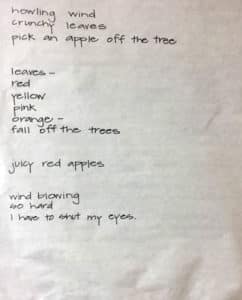 howling wind
crunchy leaves
pick an apple off the tree
leaves -
red
yellow
pink
orange -
fall off the trees
juicy red apples
wind blowing
so hard
I have to shut my eyes.